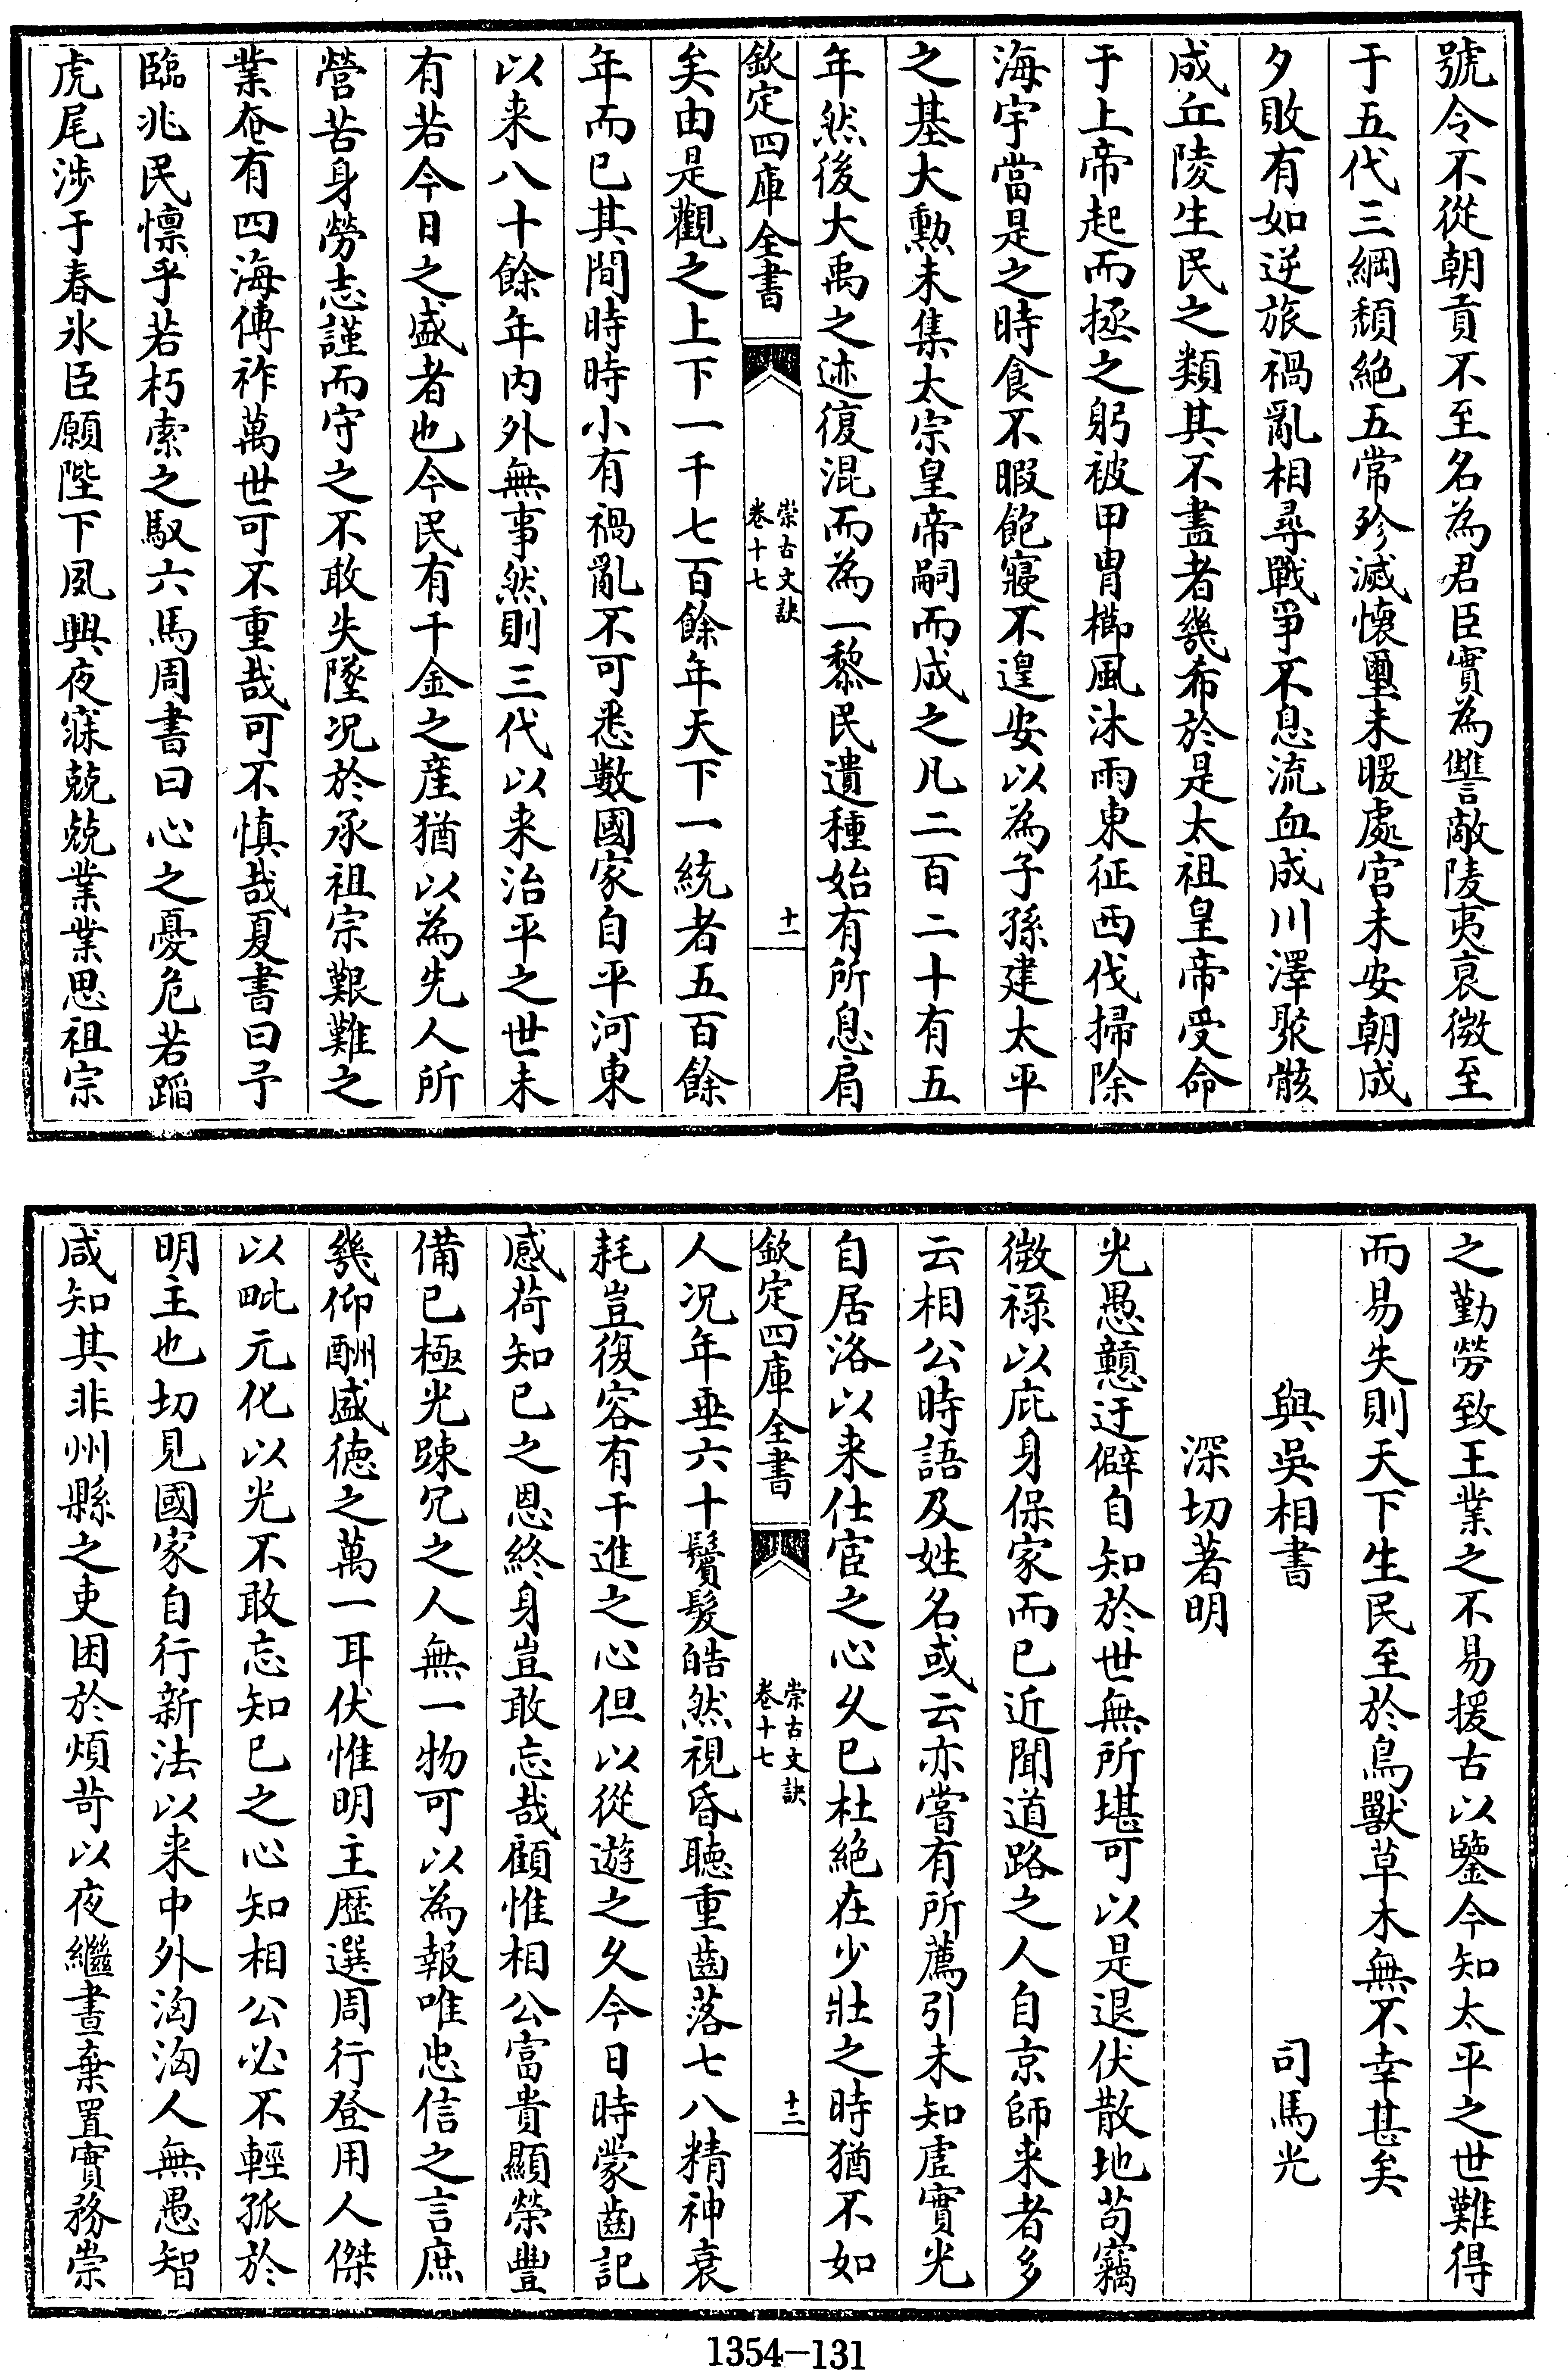 號令不從朝貢不至名為君臣實為讐敵陵夷衰微至
于五代三綱頽絶五常殄滅懷璽未暖處宮未安朝成
夕敗有如逆旅禍亂相尋戰爭不息流血成川澤聚骸
成丘陵生民之類其不盡者幾希於是太祖皇帝受命
于上帝起而拯之躬被甲胄櫛風沐雨東征西伐掃除
海宇當是之時食不暇飽寢不遑安以為子孫建太平
之基大勲未集太宗皇帝嗣而成之凡二百二十有五
年然後大禹之迹復混而為一黎民遺種始有所息肩
欽定四庫全書
崇古文訣
卷十七
十一
矣由是觀之上下一千七百餘年天下一統者五百餘
年而已其間時時小有禍亂不可悉數國家自平河東
以来八十餘年内外無事然則三代以来治平之世未
有若今日之盛者也今民有千金之産猶以為先人所
營苦身勞志謹而守之不敢失墜况於承祖宗艱難之
業奄有四海傳祚萬世可不重哉可不慎哉夏書曰予
臨兆民懔乎若朽索之馭六馬周書曰心之憂危若蹈
虎尾涉于春氷臣願陛下夙興夜寐兢兢業業思祖宗
之勤勞致王業之不易援古以鑒今知太平之世難得
而易失則天下生民至於鳥獸草木無不幸甚矣
與吳相書 司馬光
深切著明
光愚戇迂僻自知於世無所堪可以是退伏散地苟竊
微禄以庇身保家而已近聞道路之人自京師来者多
云相公時語及姓名或云亦嘗有所薦引未知虛實光
自居洛以来仕宦之心久已杜絶在少壯之時猶不如
欽定四庫全書
崇古文訣
卷十七
十二
人况年垂六十鬢髮皓然視昏聽重齒落七八精神衰
耗豈復容有干進之心但以從遊之久今日時蒙齒記
感荷知已之恩終身豈敢忘哉顧惟相公富貴顯榮豐
備已極光踈冗之人無一物可以為報唯忠信之言庶
幾仰酬盛德之萬一耳伏惟明主歴選周行登用人傑
以毗元化以光不敢忘知已之心知相公必不輕孤於
明主也切見國家自行新法以来中外洶洶人無愚智
咸知其非州縣之吏困於煩苛以夜繼晝棄置實務崇
1354-131